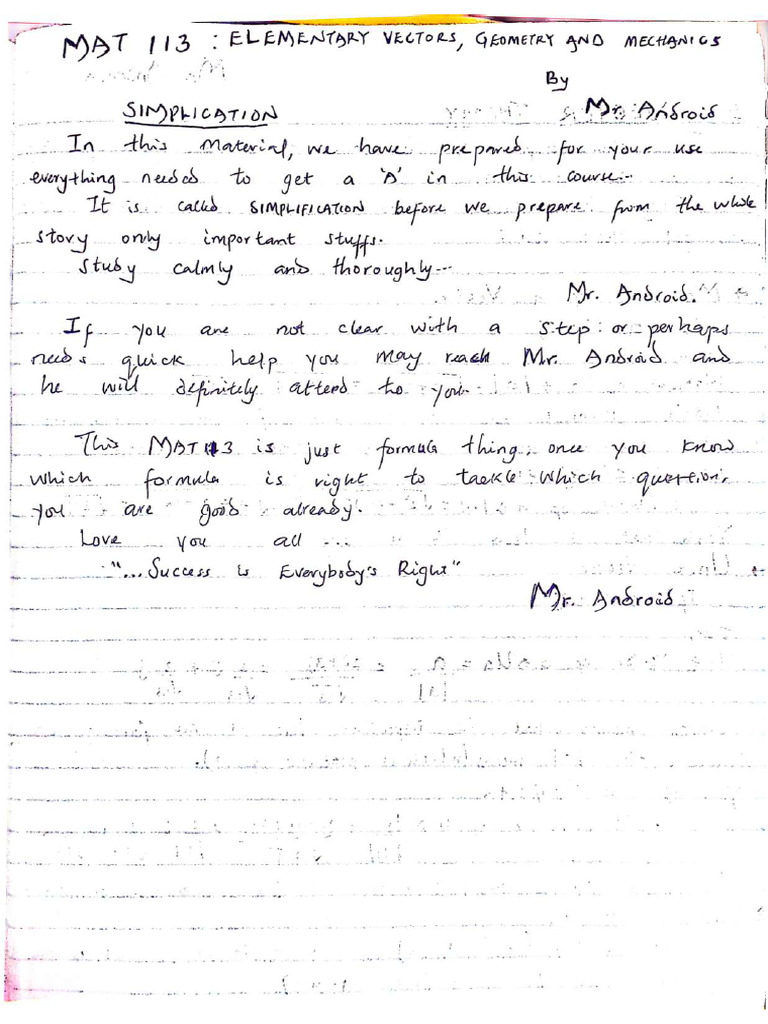 MAT 113 : ELEMENTARY VECTORS, GEOMETRY AND MECHANICS
By
SIMPLICATION Mr. Android
In this material, we have prepared for your use
everything needed to get a 'A' in this course...
It is called SIMPLIFICATION before we prepare from the whole
story only important stuffs.
Study calmly and thoroughly...
Mr. Android.
If you are not clear with a step or perhaps
needs quick help you may reach Mr. Android and
he will definitely attend to you.
This MAT 113 is just formula thing, once you know
which formula is right to tackle which question,
you are good already.
Love you all ...
"...Success is Everybody's Right"
Mr. Android